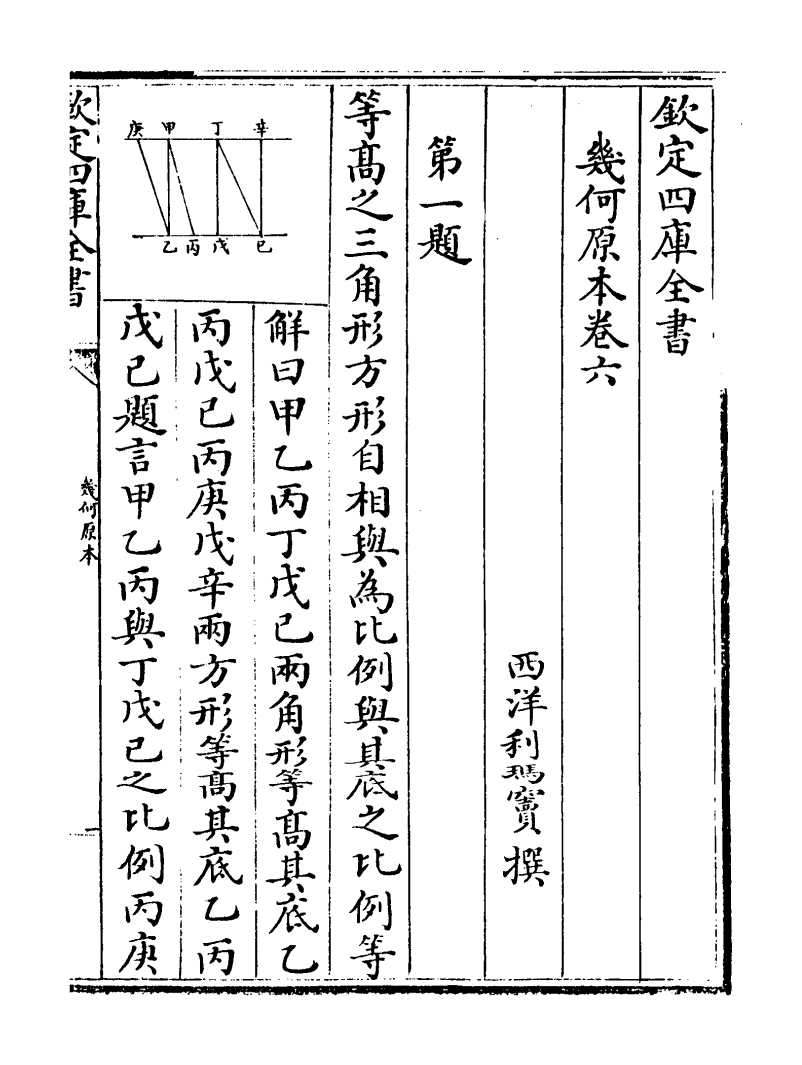 欽定四庫全書
幾何原本卷六
西洋利瑪竇撰
第一題
等髙之三角形方形自相與為比例與其底之比例等
庚甲丁辛
乙丙戊已
解曰甲乙丙丁戊已兩角形等髙其底乙
丙戊已丙庚戊辛兩方形等髙其底乙丙
戊已題言甲乙丙與丁戊已之比例丙庚
欽定四庫全書
幾何原本